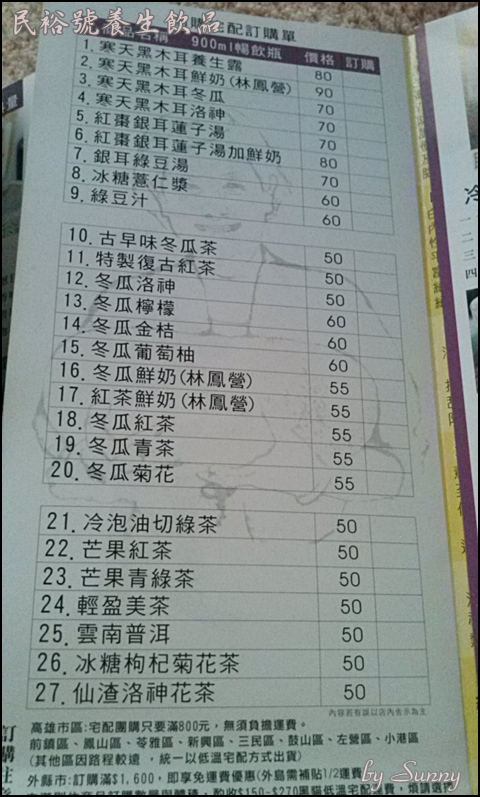 民裕號養生飲品
購宅配訂購單
品名稱 900ml暢飲瓶 價格 訂購
1. 寒天黑木耳養生露 80
2. 寒天黑木耳鮮奶(林鳳營) 90
3. 寒天黑木耳冬瓜 70
4. 寒天黑木耳洛神 70
5. 紅棗銀耳蓮子湯 70
6. 紅棗銀耳蓮子湯加鮮奶 80
7. 銀耳綠豆湯 70
8. 冰糖薏仁漿 60
9. 綠豆汁 60
10. 古早味冬瓜茶 50
11. 特製復古紅茶 50
12. 冬瓜洛神 50
13. 冬瓜檸檬 60
14. 冬瓜金桔 60
15. 冬瓜葡萄柚 60
16. 冬瓜鮮奶(林鳳營) 55
17. 紅茶鮮奶(林鳳營) 55
18. 冬瓜紅茶 55
19. 冬瓜青茶 55
20. 冬瓜菊花 55
21. 冷泡油切綠茶 50
22. 芒果紅茶 50
23. 芒果青綠茶 50
24. 輕盈美茶 50
25. 雲南普洱 50
26. 冰糖枸杞菊花茶 50
27. 仙渣洛神花茶 50
內容若有誤以店內告示為主
高雄市區:宅配團購只要滿800元，無須負擔運費。
前鎮區、鳳山區、苓雅區、新興區、三民區、鼓山區、左營區、小港區
(其他區因路程較遠，統一以低溫宅配方式出貨)
外縣市:訂購滿$1,600，即享免運費優惠(外島需補貼1/2運費)
訂購註
by Sunny